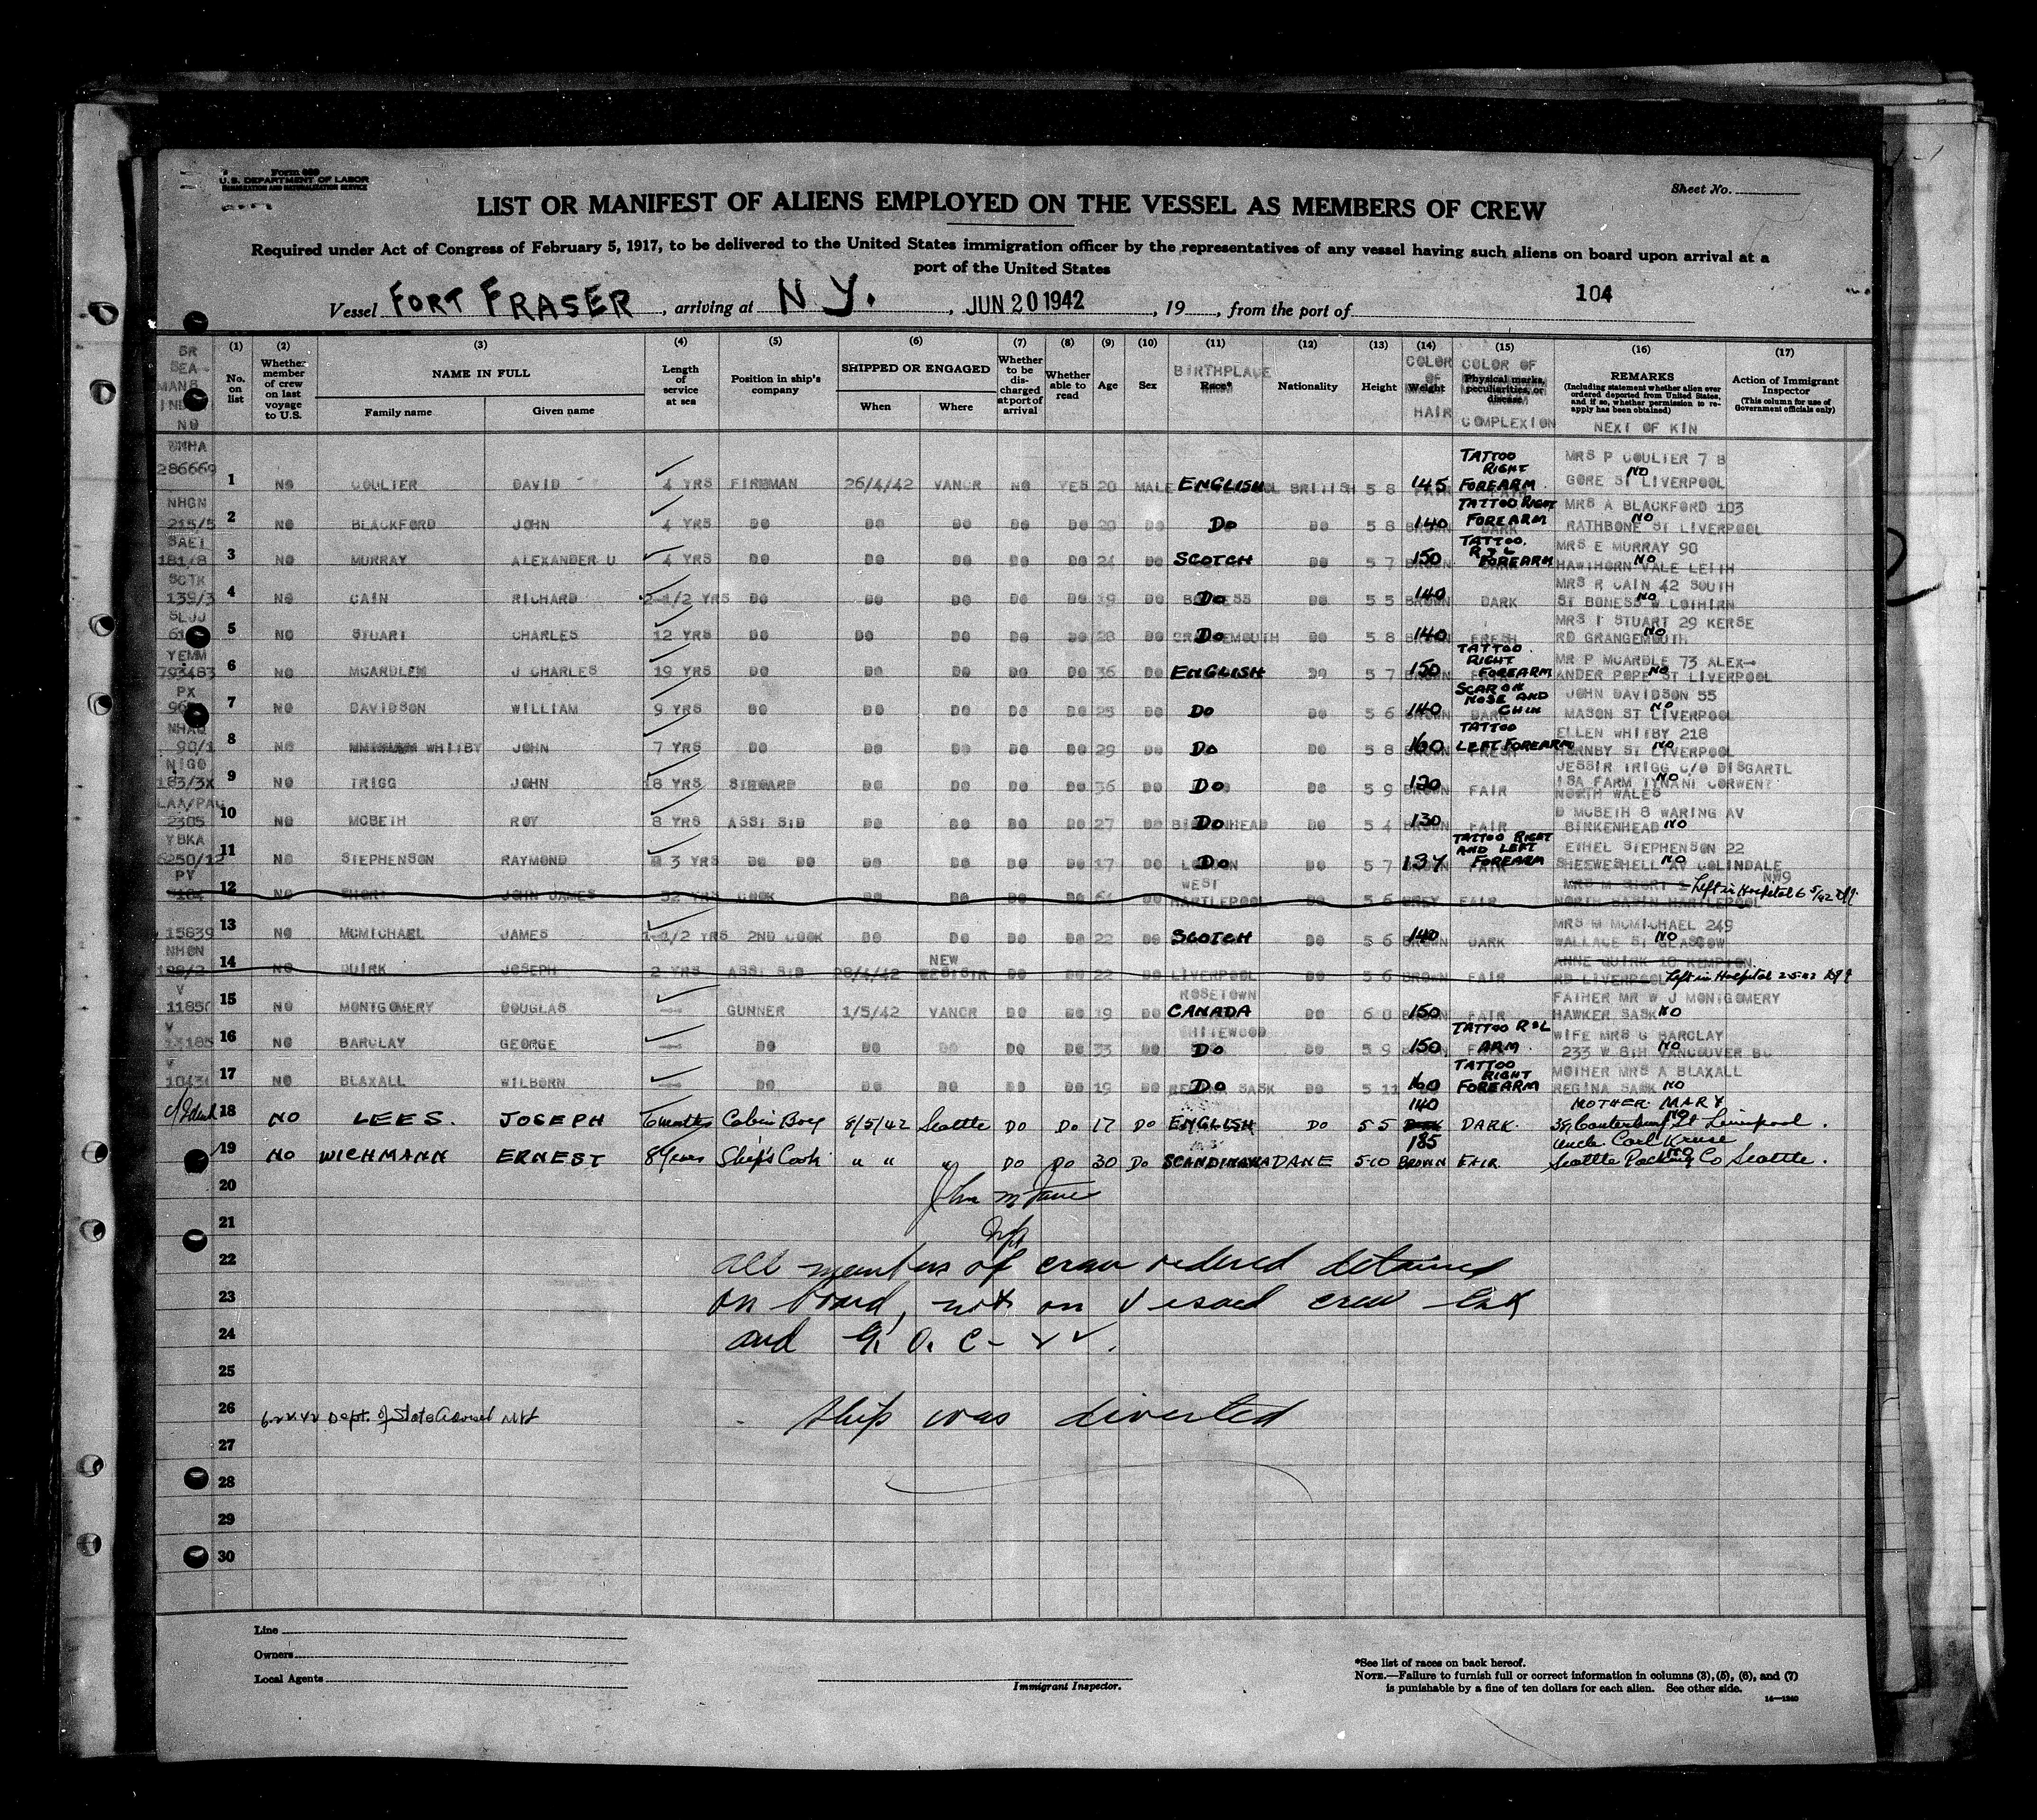 Form 689
U. S. DEPARTMENT OF LABOR
IMMIGRATION AND NATURALIZATION SERVICE
Sheet No.
LIST OR MANIFEST OF ALIENS EMPLOYED ON THE VESSEL AS MEMBERS OF CREW
Required under Act of Congress of February 5, 1917, to be delivered to the United States immigration officer by the representatives of any vessel having such aliens on board upon arrival at a
port of the United States
104
Vessel FORT FRASER, arriving at N Y., JUN 20 1942, 19, from the port of
BR SEAMANS NO
(1) No. on list
(2) Whether member of crew on last voyage to U.S.
(3) NAME IN FULL Family name Given name
(4) Length of service at sea
(5) Position in ship's company
(6) SHIPPED OR ENGAGED When Where
(7) Whether to be discharged at port of arrival
(8) Whether able to read
(9) Age
(10) Sex
(11) BIRTHPLACE Race*
(12) Nationality
(13) Height
(14) COLOR OF HAIR Weight
(15) COLOR OF COMPLEXION Physical marks, peculiarities, or disease
(16) REMARKS (Including statement whether alien ever ordered deported from United States, and if so, whether permission to reapply has been obtained) NEXT OF KIN
(17) Action of Immigrant Inspector (This column for use of Government officials only)
286669 1 NO COULTER DAVID 4 YRS FIREMAN 26/4/42 VANCR NO YES 20 MALE ENGLISH BRITISH 5 8 145 TATTOO RIGHT FOREARM MRS P COULTER 7 B GORE ST LIVERPOOL NO
NHGN 215/5 2 NO BLACKFORD JOHN 4 YRS DO DO DO DO DO 20 DO DO DO 5 8 140 TATTOO RIGHT FOREARM MRS A BLACKFORD 103 RATHBONE ST LIVERPOOL NO
SAET 181/8 3 NO MURRAY ALEXANDER U 4 YRS DO DO DO DO DO 24 DO SCOTCH DO 5 7 150 TATTOO. R & L FOREARM MRS E MURRAY 90 HAWTHORN VALE LEITH NO
139/3 4 NO CAIN RICHARD 2-1/2 YRS DO DO DO DO DO 19 DO DO DO 5 5 140 DARK MRS R CAIN 42 SOUTH ST BONESS W LOTHIRN NO
5 NO STUART CHARLES 12 YRS DO DO DO DO DO 28 DO DO DO 5 8 140 FRESH MRS T STUART 29 KERSE RD GRANGEMOUTH NO
YEMM 793483 6 NO MCARDLEM J CHARLES 19 YRS DO DO DO DO DO 36 DO ENGLISH DO 5 7 150 TATTOO. RIGHT FOREARM MR P MCARDLE 73 ALEX- ANDER POPE ST LIVERPOOL NO
PX 7 NO DAVIDSON WILLIAM 9 YRS DO DO DO DO DO 25 DO DO DO 5 6 140 SCAR ON NOSE AND CHIN JOHN DAVIDSON 55 MASON ST LIVERPOOL NO
NHAQ 90/1 8 NO WHITBY JOHN 7 YRS DO DO DO DO DO 29 DO DO DO 5 8 160 TATTOO LEFT FOREARM ELLEN WHITBY 218 HORNBY ST LIVERPOOL NO
NIGO 183/3X 9 NO TRIGG JOHN 18 YRS STEWARD DO DO DO DO 36 DO DO DO 5 9 120 FAIR JESSIR TRIGG C/O DISGARTL ISA FARM TYNANT CORWENT NORTH WALES NO
2305 10 NO MCBETH ROY 8 YRS ASST STD DO DO DO DO 27 DO DO DO 5 4 130 FAIR D MCBETH 8 WARING AV BIRKENHEAD NO
YBKA 11 NO STEPHENSON RAYMOND 3 YRS DO DO DO DO DO DO 17 DO DO DO 5 7 137 TATTOO RIGHT AND LEFT FOREARM ETHEL STEPHENSON 22 AV COLINDALE NW9 NO
PY 12 NO SHORT JOHN JAMES 52 YRS COOK DO DO DO DO 64 DO WEST HARTLEPOOL DO 5 6 GREY FAIR MRS M SHORT NORTH BASIN HARTLEPOOL Left in Hospital 6 5/42
15839 13 NO MCMICHAEL JAMES 1-1/2 YRS 2ND COOK DO DO DO DO 22 DO SCOTCH DO 5 6 140 DARK MRS M MCMICHAEL 249 WALLACE ST GLASGOW NO
NHON 14 NO QUIRK JOSEPH 2 YRS ASST STD 28/4/42 NEW WESTSTR DO DO 22 DO LIVERPOOL DO 5 6 BROWN FAIR ANNE QUIRK 10 KEMPTON RD LIVERPOOL Left in Hospital 2-5-42
V 11850 15 NO MONTGOMERY DOUGLAS GUNNER 1/5/42 VANCR DO DO 19 DO ROSETOWN CANADA DO 6 0 150 FAIR FATHER MR W J MONTGOMERY HAWKER SASK NO
V 13185 16 NO BARCLAY GEORGE DO DO DO DO DO 33 DO WHITEWOOD DO DO 5 9 150 TATTOO R & L ARM. WIFE MRS G BARCLAY 233 W 8TH VANCOUVER BC NO
V 17 NO BLAXALL WILBORN DO DO DO DO DO 19 DO REGINA SASK DO DO 5 11 160 TATTOO RIGHT FOREARM MOTHER MRS A BLAXALL REGINA SASK NO
18 NO LEES. JOSEPH 6 months Cabin Boy 8/5/42 Seattle DO DO 17 DO ENGLISH DO 5 5 140 DARK. MOTHER MARY 38 Canterbury St Liverpool. NO
19 NO WICHMANN ERNEST 8 Years Ship's Cook " " " DO DO 30 DO SCANDINAVA DANE 5-10 185 BROWN FAIR. Uncle Carl Kruse Seattle Packing Co Seattle. NO
20
21
22 all members of crew ordered detained
23 on board, not on Vessel crew list
24 and
25
26 Dept. of State
ship was diverted
27
28
29
30
Line
Owners
Local Agents
Immigrant Inspector.
*See list of races on back hereof.
NOTE.—Failure to furnish full or correct information in columns (3), (5), (6), and (7)
is punishable by a fine of ten dollars for each alien. See other side.
14—1240